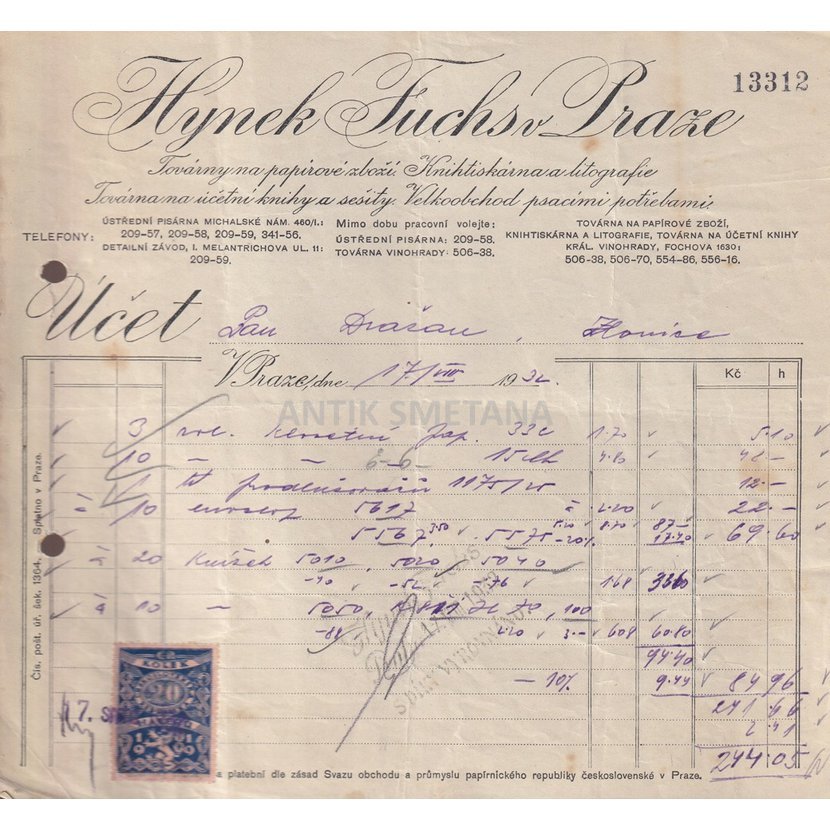 13312
Hynek Fuchs v Praze
Továrny na papírové zboží. Knihtiskárna a litografie
Továrna na účetní knihy a sešity. Velkoobchod psacími potřebami.
TELEFONY:
ÚSTŘEDNÍ PISÁRNA MICHALSKÉ NÁM. 460/I.:
209-57, 209-58, 209-59, 341-56.
DETAILNÍ ZÁVOD, I. MELANTRICHOVA UL. 11:
209-59.
Mimo dobu pracovní volejte:
ÚSTŘEDNÍ PISÁRNA: 209-58.
TOVÁRNA VINOHRADY: 506-38.
TOVÁRNA NA PAPÍROVÉ ZBOŽÍ,
KNIHTISKÁRNA A LITOGRAFIE, TOVÁRNA NA ÚČETNÍ KNIHY
KRÁL. VINOHRADY, FOCHOVA 1630:
506-38, 506-70, 554-86, 556-16.
Účet Pan
V Praze, dne 17/VIII 1932.
Kč h
ANTIK SMETANA
3 rol. 1.70 5.10
10 — —
1 1175/25 12.—
à 10 5617 à 2.20 22.—
5567 5575 -20% 87.— 17.40 69.60
à 20 5010 5020 5040
-40 -52 -76 168 3360
à 10 — 5050, 100
-88 608 60.80
94.40
— 10% 9.44 84.96
241.66
2.41
244.05
Čís. pošt. úř. šek. 1364. — Splatno v Praze.
KOLEK
20
1919
17.
a platební dle zásad Svazu obchodu a průmyslu papírnického republiky československé v Praze.